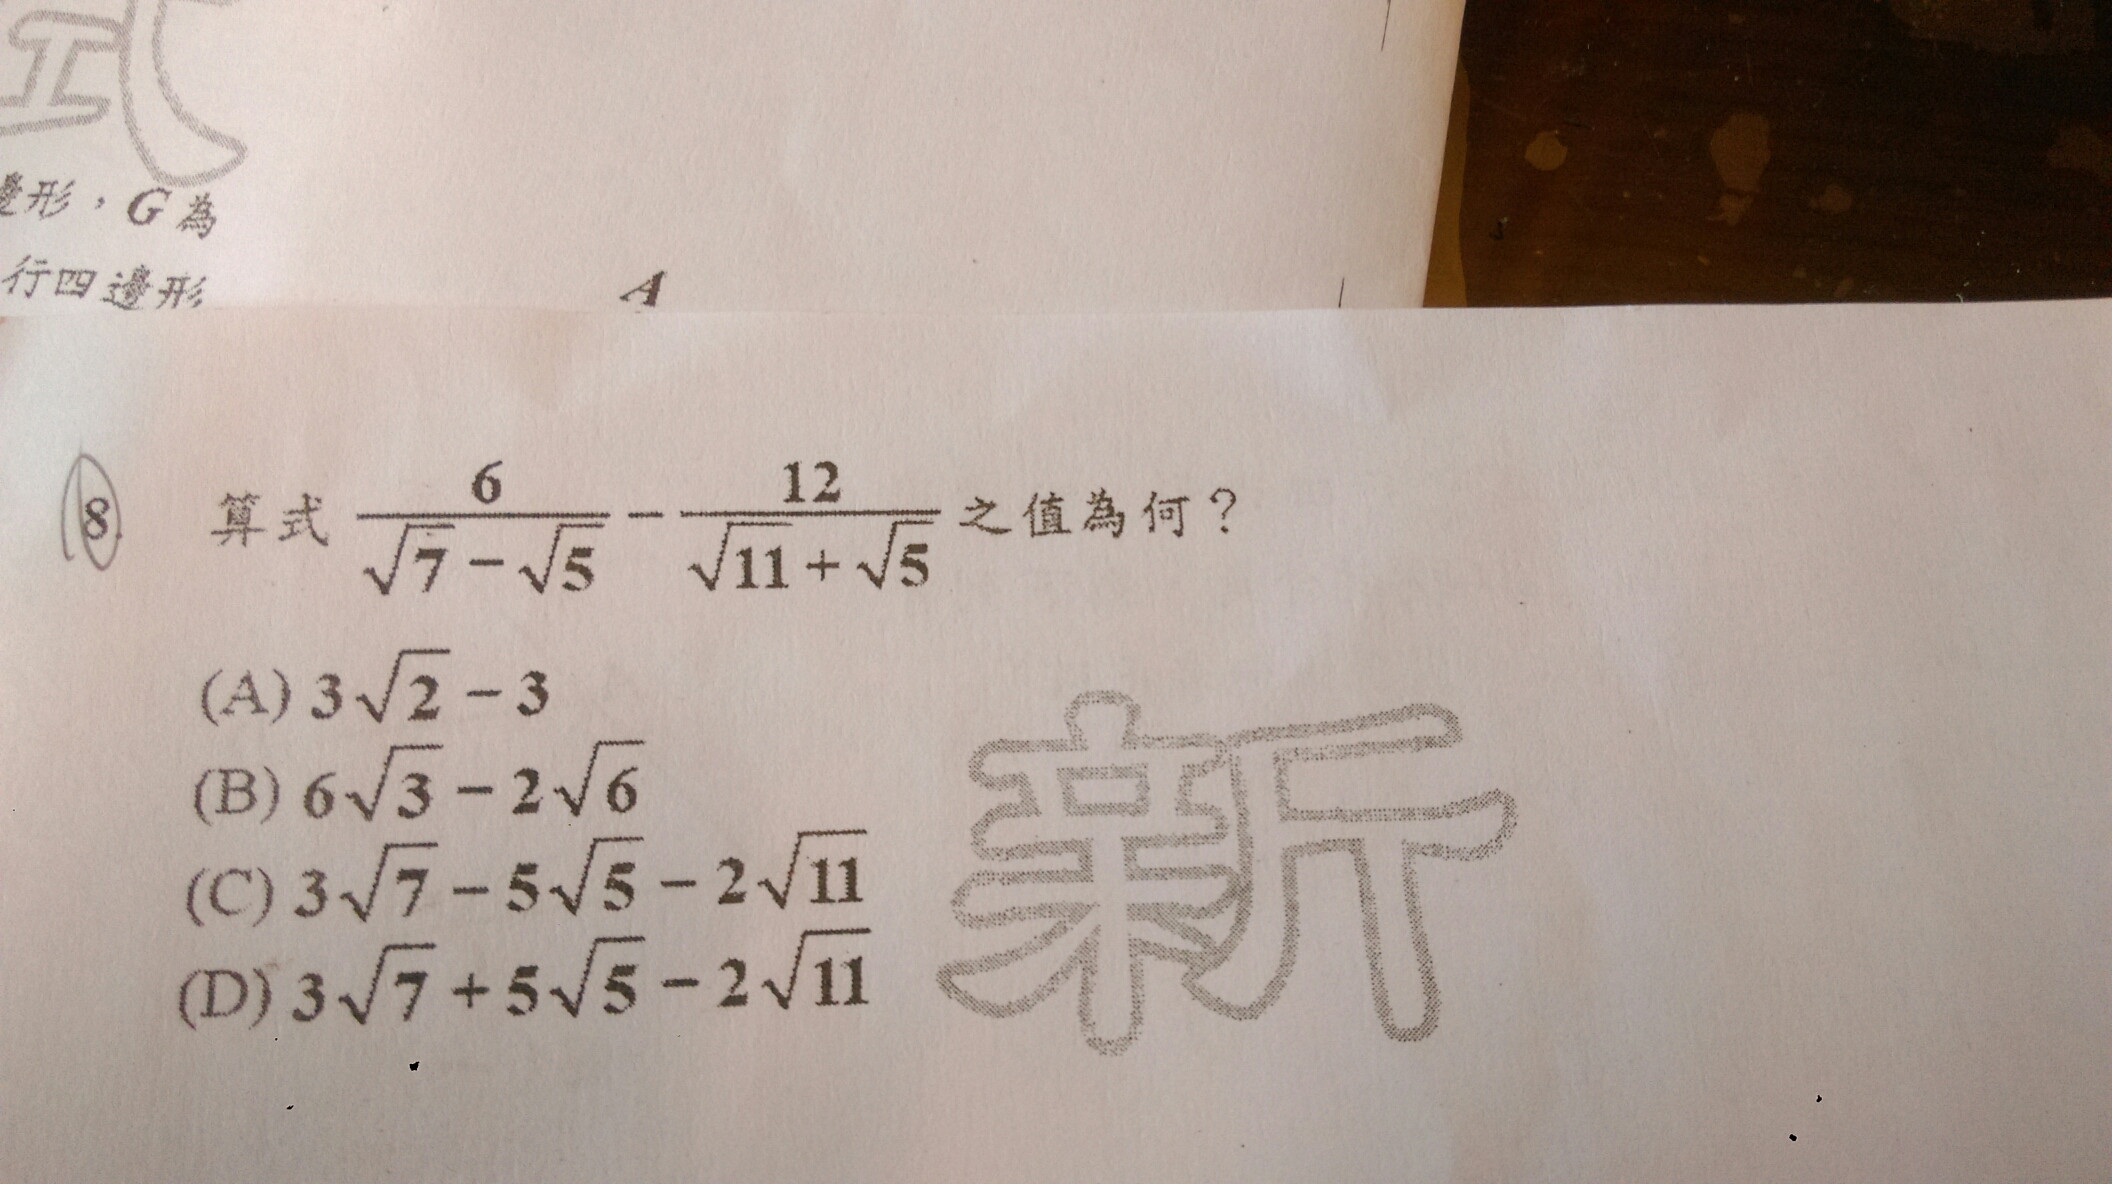 式
邊形，G為
行四邊形
A
8. 算式 \frac{6}{\sqrt{7}-\sqrt{5}} - \frac{12}{\sqrt{11}+\sqrt{5}} 之值為何？
(A) 3√2 − 3
(B) 6√3 − 2√6
(C) 3√7 − 5√5 − 2√11
(D) 3√7 + 5√5 − 2√11
新